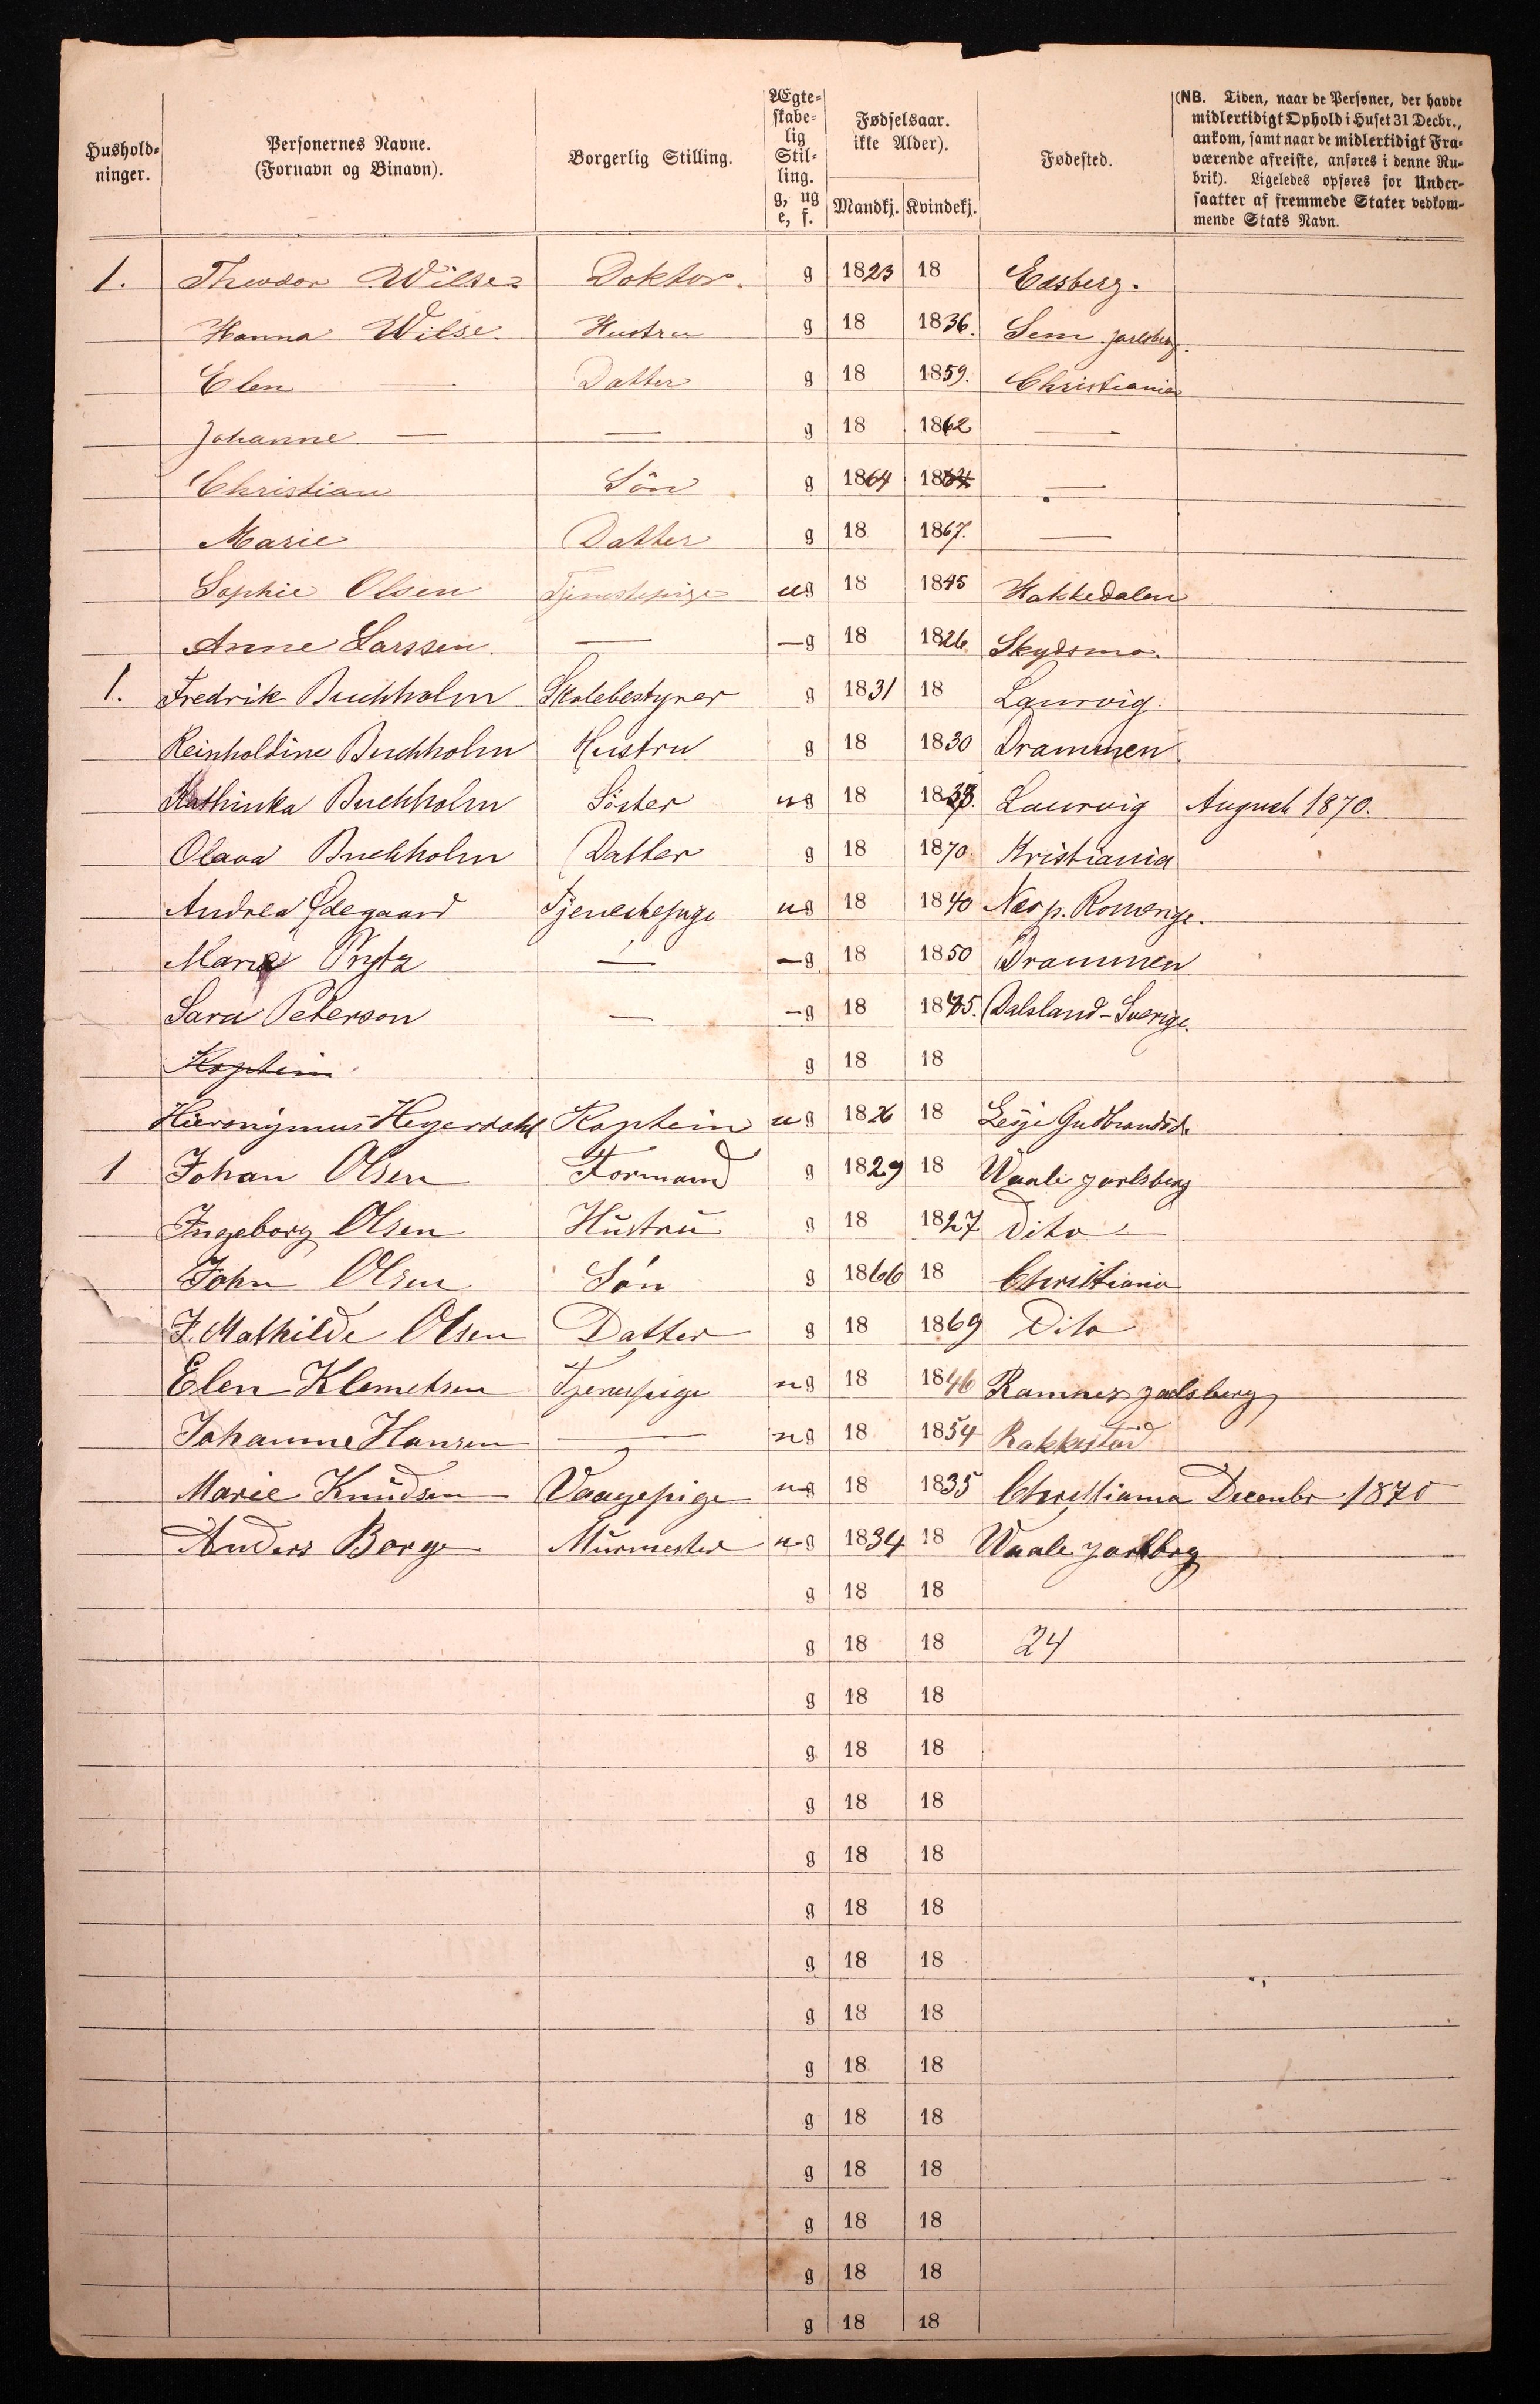 Hushold-
ninger.
Personernes Navne.
(Fornavn og Binavn).
Borgerlig Stilling.
Ægte-
skabe-
lig
Stil-
ling.
g, ug
e, f.
Fødselsaar.
ikke Alder).
Mandkj. Kvindekj.
Fødested.
(NB. Tiden, naar de Personer, der havde
midlertidigt Ophold i Huset 31 Decbr.,
ankom, samt naar de midlertidigt Fra-
værende afreiste, anføres i denne Ru-
brik). Ligeledes opføres for Under-
saatter af fremmede Stater vedkom-
mende Stats Navn.
1. Theodor Wilse Doktor. g 1823 18 Edsberg.
Hanna Wilse. Hustru g 18 1836. Sem Jarlsberg.
Elen Datter g 18 1859. Christiania
Johanne — — g 18 1862 —
Christian Sön g 1864 1864 —
Marie Datter g 18 1867. —
Sophie Olsen Tjenestepige ug 18 1845 Hakkedalen
Anne Larssen. — —g 18 1826 Skydsmo.
1. Fredrik Buchholm Skolebestyrer g 1831 18 Laurvig.
Reinholdine Buchholm Hustru g 18 1830 Drammen
Kathinka Buchholm Söster ug 18 1833. Laurvig August 1870.
Olava Buchholm Datter g 18 1870 Kristiania
Andrea Ødegaard Tjenestepige ug 18 1840 Nes p. Romerige.
Marie Prytz — —g 18 1850 Drammen
Sara Peterson — —g 18 1845. Dalsland-Sverige.
Kaptein g 18 18
Hieronymus Heyerdahl Kaptein ug 1826 18 Lesje Gudbrandsd.
1 Johan Olsen Formand g 1829 18 Waale Jarlsberg
Ingeborg Olsen Hustru g 18 1827 Dito —
John Olsen Són g 1866 18 Christiania
J. Mathilde Olsen Datter g 18 1869 Dito
Elen Klemetsen Tjenespige ug 18 1846 Ramnes Jarlsberg
Johanne Hansen — ug 18 1854 Rakkestad
Marie Knudsen Vaagepige ug 18 1835 Christiania Decembr 1870
Anders Borge Murmester ug 1834 18 Waale Jarlbrg
g 18 18
g 18 18 24
g 18 18
g 18 18
g 18 18
g 18 18
g 18 18
g 18 18
g 18 18
g 18 18
g 18 18
g 18 18
g 18 18
g 18 18
g 18 18